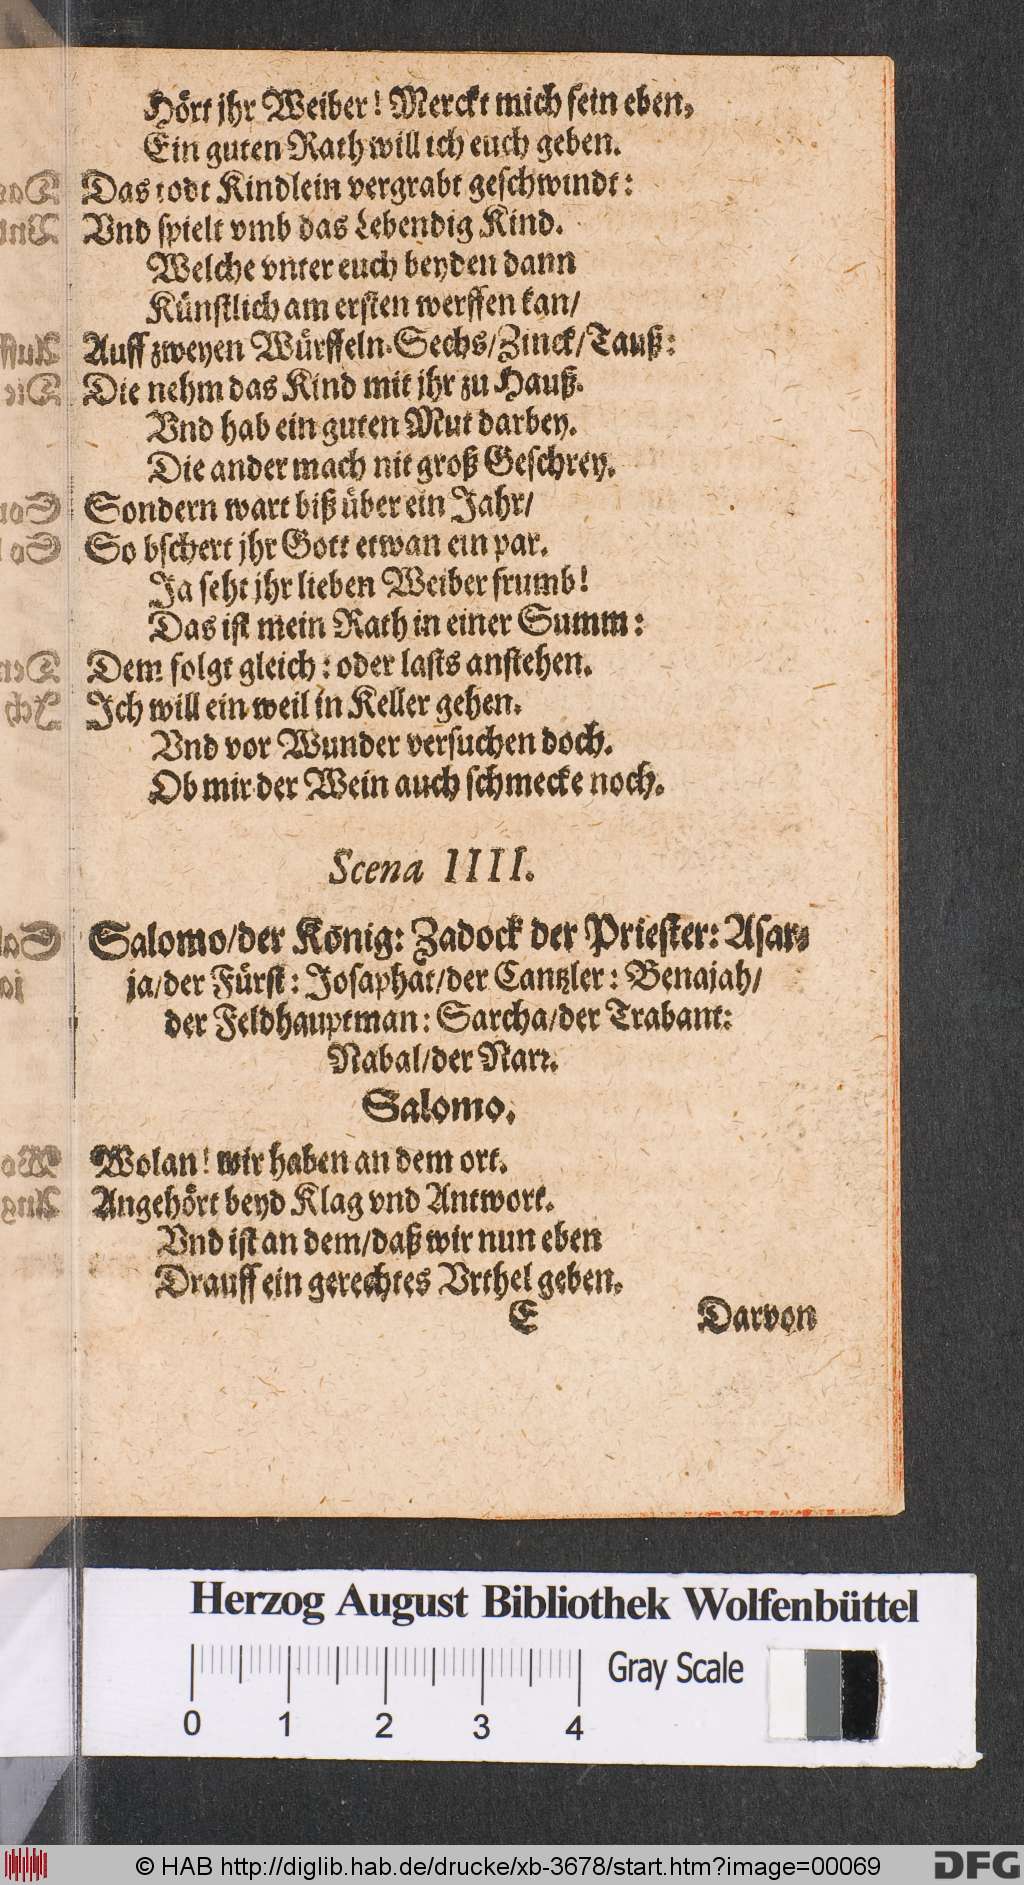 Hört jhr Weiber! Merckt mich fein eben,
Ein guten Rath will ich euch geben.
Das todt Kindlein vergrabt geschwindt:
Vnd spielt vmb das Lebendig Kind.
Welche vnter euch beyden dann
Künstlich am ersten werffen kan/
Auff zweyen Würffeln Sechs/Zinck/Tauß:
Die nehm das Kind mit jhr zu Hauß.
Vnd hab ein guten Mut darbey.
Die ander mach nit groß Geschrey.
Sondern wart biß über ein Jahr/
So bschert jhr Gott etwan ein par.
Ja seht jhr lieben Weiber frumb!
Das ist mein Rath in einer Summ:
Dem folgt gleich: oder lasts anstehen.
Jch will ein weil in Keller gehen.
Vnd vor Wunder versuchen doch.
Ob mir der Wein auch schmecke noch.
Scena IIII.
Salomo/der König: Zadock der Priester: Asar-
ja/der Fürst: Josaphat/der Cantzler: Benajah/
der Feldhauptman: Sarcha/der Trabant:
Nabal/der Narr.
Salomo.
Wolan! wir haben an dem ort.
Angehört beyd Klag vnd Antwort.
Vnd ist an dem/daß wir nun eben
Drauff ein gerechtes Vrthel geben.
E Darvon
Herzog August Bibliothek Wolfenbüttel
0 1 2 3 4 Gray Scale
© HAB http://diglib.hab.de/drucke/xb-3678/start.htm?image=00069 DFG